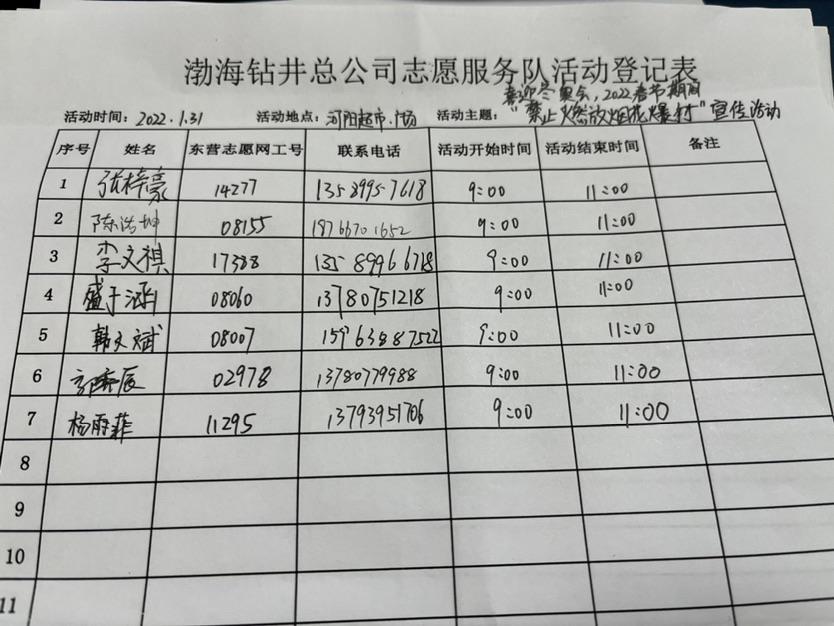 渤海钻井总公司志愿服务队活动登记表
喜迎冬奥会,2022春节期间
活动时间: 2022.1.31 活动地点: 河阳超市.广场 活动主题: "禁止燃放烟花爆竹"宣传活动
序号 姓名 东营志愿网工号 联系电话 活动开始时间 活动结束时间 备注
1 张梓豪 14277 13589957618 9:00 11:00
2 陈浩坤 08155 18766701652 9:00 11:00
3 李文祺 17388 13589966718 9:00 11:00
4 盛于涵 08060 13780751218 9:00 11:00
5 韩文斌 08007 15963887522 9:00 11:00
6 02978 13780779988 9:00 11:00
7 杨雨菲 11295 13793951706 9:00 11:00
8
9
10
11